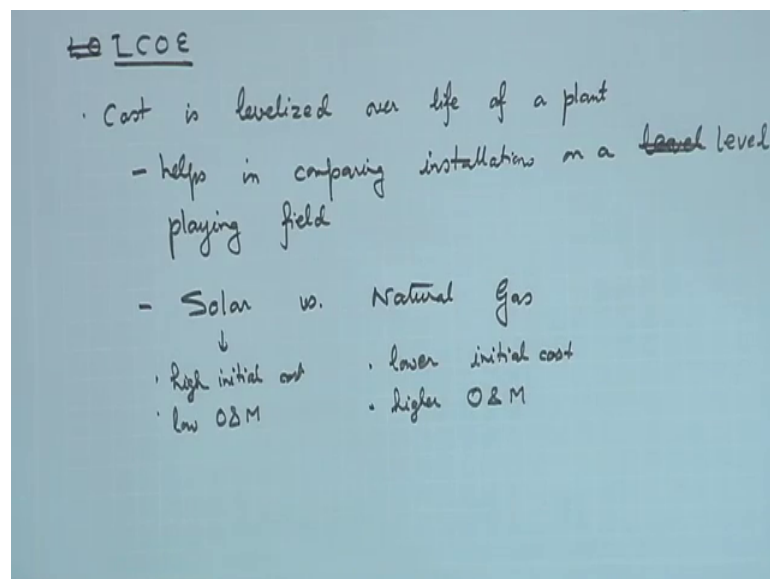 LCOE
· Cost is levelized over life of a plant
- helps in comparing installations on a level
playing field
- Solar vs. Natural Gas
↓
· high initial cost · lower initial cost
· low O&M · higher O&M